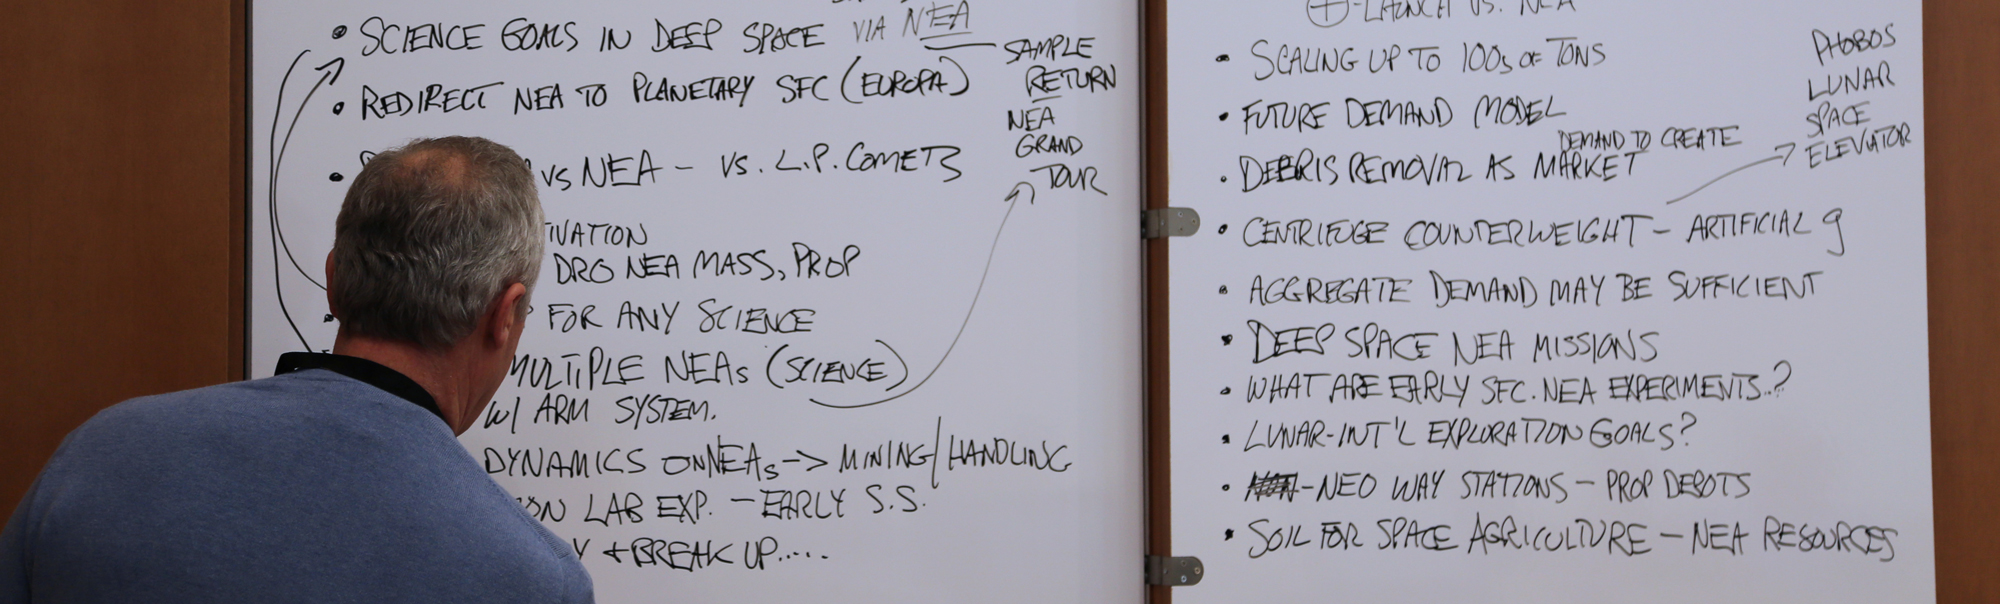 SCIENCE GOALS IN DEEP SPACE VIA NEA
SAMPLE
RETURN
NEA
GRAND
TOUR
REDIRECT NEA TO PLANETARY SFC (EUROPA)
VS NEA - VS. L.P. COMETS
DRO NEA MASS, PROP
FOR ANY SCIENCE
MULTIPLE NEAs (SCIENCE)
W/ ARM SYSTEM.
DYNAMICS ON NEAs -> MINING/HANDLING
LAB EXP. - EARLY S.S.
+ BREAK UP.....
-LAUNCH VS. NEA
SCALING UP TO 100s OF TONS
PHOBOS
LUNAR
SPACE
ELEVATOR
FUTURE DEMAND MODEL
DEMAND TO CREATE
DEBRIS REMOVAL AS MARKET
CENTRIFUGE COUNTERWEIGHT - ARTIFICIAL g
AGGREGATE DEMAND MAY BE SUFFICIENT
DEEP SPACE NEA MISSIONS
WHAT ARE EARLY SFC. NEA EXPERIMENTS..?
LUNAR-INT'L EXPLORATION GOALS?
-NEO WAY STATIONS - PROP DEPOTS
SOIL FOR SPACE AGRICULTURE - NEA RESOURCES